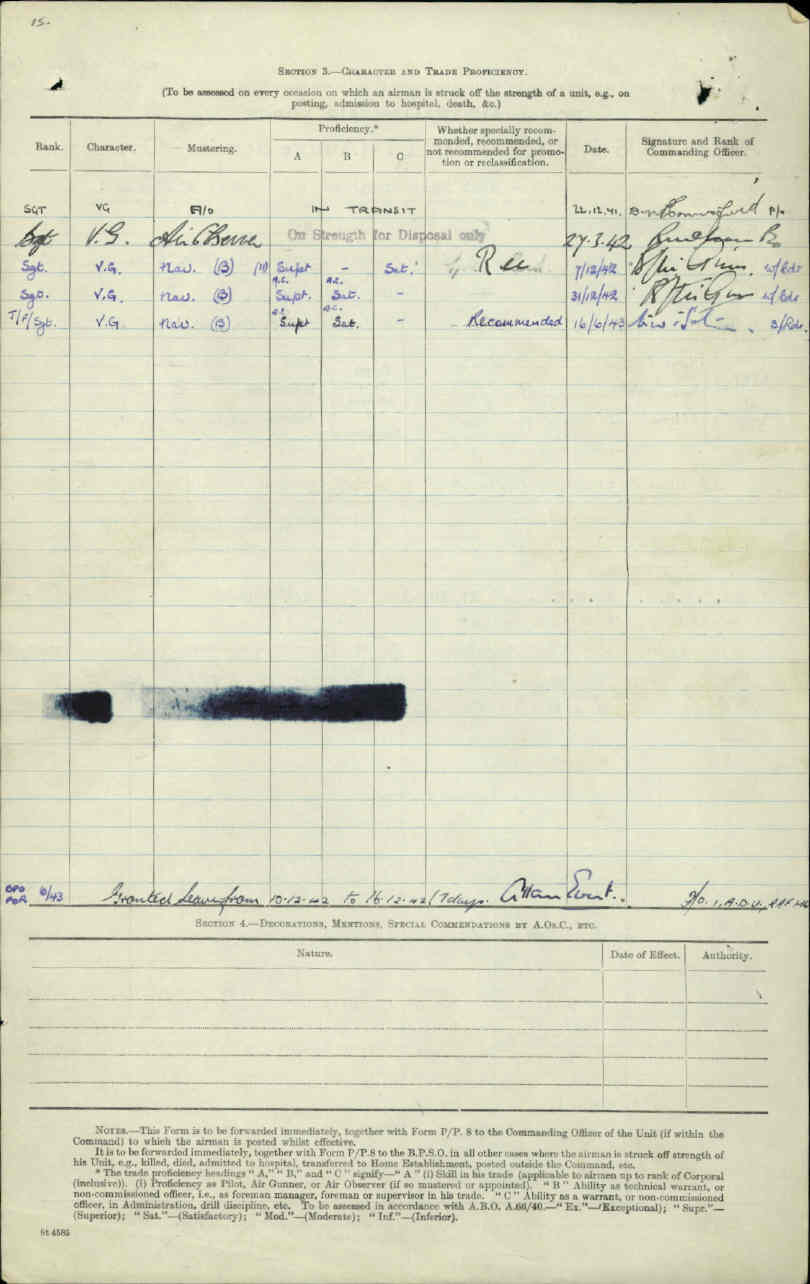 15.
SECTION 3.—CHARACTER AND TRADE PROFICIENCY.
(To be assessed on every occasion on which an airman is struck off the strength of a unit, e.g., on
posting, admission to hospital, death, &c.)
Rank. Character. Mustering. Proficiency.* A B C Whether specially recom-
mended, recommended, or
not recommended for promo-
tion or reclassification. Date. Signature and Rank of
Commanding Officer.
SGT VG A/O IN TRANSIT 22.12.41. P/O
Sgt V.G. Air Observer On Strength for Disposal only 27.3.42
Sgt. V.G. Nav. (B) (11) Supt - Sat. Rec 7/12/42 W/Cdr
A.C. A.C.
Sgt. V.G. Nav. (B) Supt. Sat. - 31/12/42 W/Cdr
A.C. A.C.
T/F/Sgt. V.G. Nav. (B) Supt Sat. - Recommended 16/6/43 S/Ldr.
POR 6/43 Granted Leave from 10.12.42 to 16.12.42 (7 days. F/O. 1, A.D.U.,
SECTION 4.—DECORATIONS, MENTIONS, SPECIAL COMMENDATIONS BY A.OS.C., ETC.
Nature. Date of Effect. Authority.
NOTES.—This Form is to be forwarded immediately, together with Form P/P. 8 to the Commanding Officer of the Unit (if within the
Command) to which the airman is posted whilst effective.
It is to be forwarded immediately, together with Form P/P.8 to the B.P.S.O. in all other cases where the airman is struck off strength of
his Unit, e.g., killed, died, admitted to hospital, transferred to Home Establishment, posted outside the Command, etc.
* The trade proficiency headings "A," "B," and "C" signify—"A" (i) Skill in his trade (applicable to airmen up to rank of Corporal
(inclusive)). (i) Proficiency as Pilot, Air Gunner, or Air Observer (if so mustered or appointed). "B" Ability as technical warrant, or
non-commissioned officer, i.e., as foreman manager, foreman or supervisor in his trade. "C" Ability as a warrant, or non-commissioned
officer, in Administration, drill discipline, etc. To be assessed in accordance with A.B.O. A.66/40.—"Ex."—(Exceptional); "Supr."—
(Superior); "Sat."—(Satisfactory); "Mod."—(Moderate); "Inf."—(Inferior).
St 4585